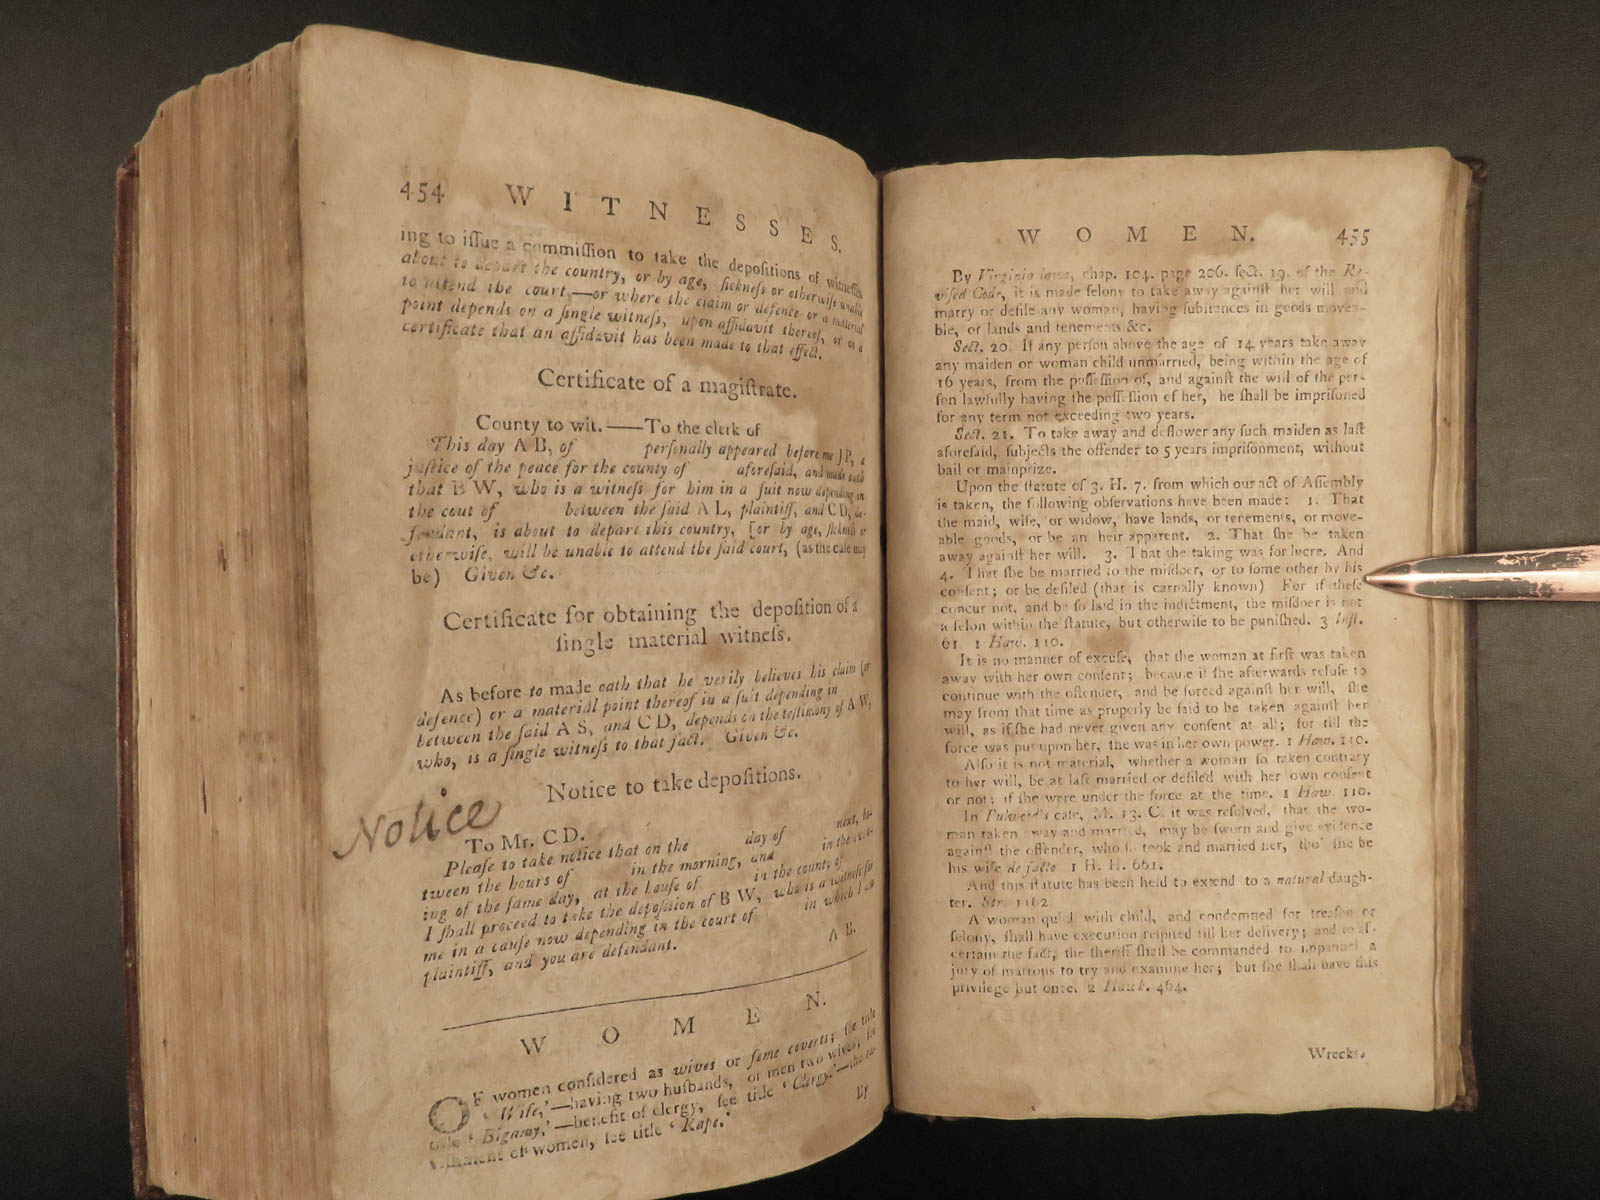 454 WITNESSES.
ing to iſſue a commiſſion to take the depoſitions of witneſſes
about to depart the country, or by age, ſickneſs or otherwiſe unable
to attend the court,—or where the claim or defence or a material
point depends on a ſingle witneſs, upon affidavit thereof, or on a
certificate that an affidavit has been made to that effect.
Certificate of a magiſtrate.
County to wit.——To the clerk of
This day A B, of perſonally appeared before me J P, a
juſtice of the peace for the county of aforeſaid, and made oath
that B W, who is a witneſs for him in a ſuit now depending in
the cout of between the ſaid A L, plaintiff, and C D, de-
fendant, is about to depart this country, [or by age, ſickneſs or
otherwiſe, will be unable to attend the ſaid court, (as the caſe may
be) Given &c.
Certificate for obtaining the depoſition of a
ſingle material witneſs.
As before to made oath that he verily believes his claim (or
defence) or a material point thereof in a ſuit depending in
between the ſaid A S, and C D, depends on the teſtimony of A W,
who, is a ſingle witneſs to that fact. Given &c.
Notice to take depoſitions.
Notice
To Mr. C D.
Pleaſe to take notice that on the day of next, be-
tween the hours of in the morning, and in the even-
ing of the ſame day, at the houſe of in the county of
I ſhall proceed to take the depoſition of B W, who is a witneſs for
me in a cauſe now depending in the court of in which I am
plaintiff, and you are defendant. A B.
WOMEN.
OF women conſidered as wives or feme coverts; ſee title
‘Wife,’—having two huſbands, or men two wives, ſee
title ‘Bigamy,’—benefit of clergy, ſee title ‘Clergy.’—the ra-
viſhment of women, ſee title ‘Rape.’
By
WOMEN. 455
By Virginia laws, chap. 104. page 206. ſect. 19. of the Re-
viſed Code, it is made felony to take away againſt her will and
marry or defile any woman, having ſubſtances in goods movea-
ble, or lands and tenements &c.
Sect. 20. If any perſon above the age of 14 years take away
any maiden or woman child unmarried, being within the age of
16 years, from the poſſeſſion of, and againſt the will of the per-
ſon lawfully having the poſſeſſion of her, he ſhall be impriſoned
for any term not exceeding two years.
Sect. 21. To take away and deflower any ſuch maiden as laſt
aforeſaid, ſubjects the offender to 5 years impriſonment, without
bail or mainprize.
Upon the ſtatute of 3. H. 7. from which our act of Aſſembly
is taken, the following obſervations have been made: 1. That
the maid, wife, or widow, have lands, or tenements, or move-
able goods, or be an heir apparent. 2. That ſhe be taken
away againſt her will. 3. That the taking was for lucre. And
4. That ſhe be married to the miſdoer, or to ſome other by his
conſent; or be defiled (that is carnally known) For if theſe
concur not, and be ſo laid in the indictment, the miſdoer is not
a felon within the ſtatute, but otherwiſe to be puniſhed. 3 Inſt.
61. 1 Haw. 110.
It is no manner of excuſe, that the woman at firſt was taken
away with her own conſent; becauſe if ſhe afterwards refuſe to
continue with the offender, and be forced againſt her will, ſhe
may from that time as properly be ſaid to be taken againſt her
will, as if ſhe had never given any conſent at all; for till the
force was put upon her, ſhe was in her own power. 1 Haw. 110.
Alſo it is not material, whether a woman ſo taken contrary
to her will, be at laſt married or defiled with her own conſent
or not; if ſhe were under the force at the time. 1 Haw. 110.
In Fulwood's caſe, M. 13. C. it was reſolved, that the wo-
man taken away and married, may be ſworn and give evidence
againſt the offender, who ſo took and married her, tho' ſhe be
his wife de facto 1 H. H. 661.
And this ſtatute has been held to extend to a natural daugh-
ter. Str. 1162.
A woman quick with child, and condemned for treaſon or
felony, ſhall have execution reſpited till her delivery; and to aſ-
certain the fact, the ſheriff ſhall be commanded to impannel a
jury of matrons to try and examine her; but ſhe ſhall have this
privilege but once. 2 Hawk. 464.
Wrecks.